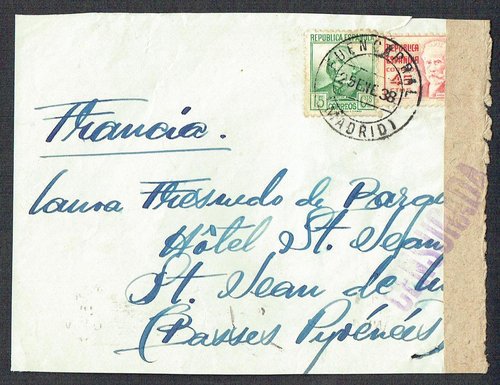 REPUBLICA ESPAÑOLA
15 CTS
CORREOS
REPUBLICA
ESPAÑOLA
FUENCARRAL
25 ENE 38
(MADRID)
Francia.
Laura Fresnedo de
Hôtel St. Jean
St. Jean de
(Basses Pyrénées
CENSURA